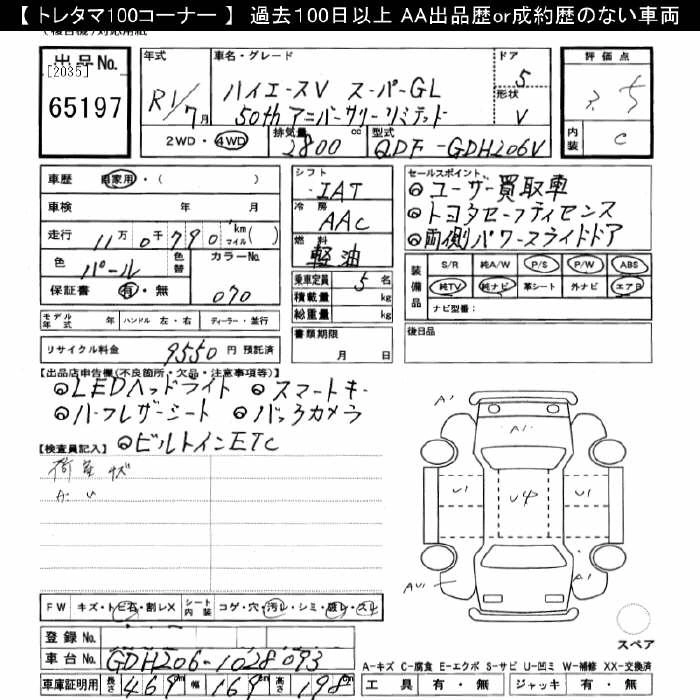 【 トレタマ100コーナー 】 過去100日以上 AA出品歴or成約歴のない車両
出品No.
[2035]
65197
年式
R1/7月
車名・グレード
ハイエースV スーパーGL
50th アニバーサリーリミテッド
ドア
5
形状
V
評価点
内装
C
2WD・4WD
排気量
2800 cc
型式
QDF-GDH206V
車歴 自家用・( )
車検 年 月
走行 11万0千790 km(マイル)( )
色 パール
色替
カラーNo.
070
保証書 有・無
シフト
IAT
冷房
AAC
燃料
軽油
乗車定員 5名
積載量 kg
総重量 kg
セールスポイント
◎ユーザー買取車
◎トヨタセーフティセンス
◎両側パワースライドドア
装備品
S/R 純A/W P/S P/W ABS
純TV 純ナビ 革シート 外ナビ エアB
ナビ型番:
モデル年式 年 ハンドル 左・右 ディーラー・並行
リサイクル料金 9550 円 預託済
書類期限
月 日
後日品
【出品店申告欄(不良箇所・欠品・注意事項等)】
◎LEDヘッドライト ◎スマートキー
◎ハーフレザーシート ◎バックカメラ
◎ビルトインETC
【検査員記入】
荷室
A1
A1
U1
U4
U1
A1
FW キズ・トビ石・割レX シート内装 コゲ・穴・汚レ・シミ・破レ・スレ
登録No.
車台No. GDH206-1028093
車庫証明用 長さ 469 cm 幅 169 cm 高さ 198 cm
スペア
A-キズ C-腐食 E-エクボ S-サビ U-凹ミ W-補修 XX-交換済
工具 有・無 ジャッキ 有・無